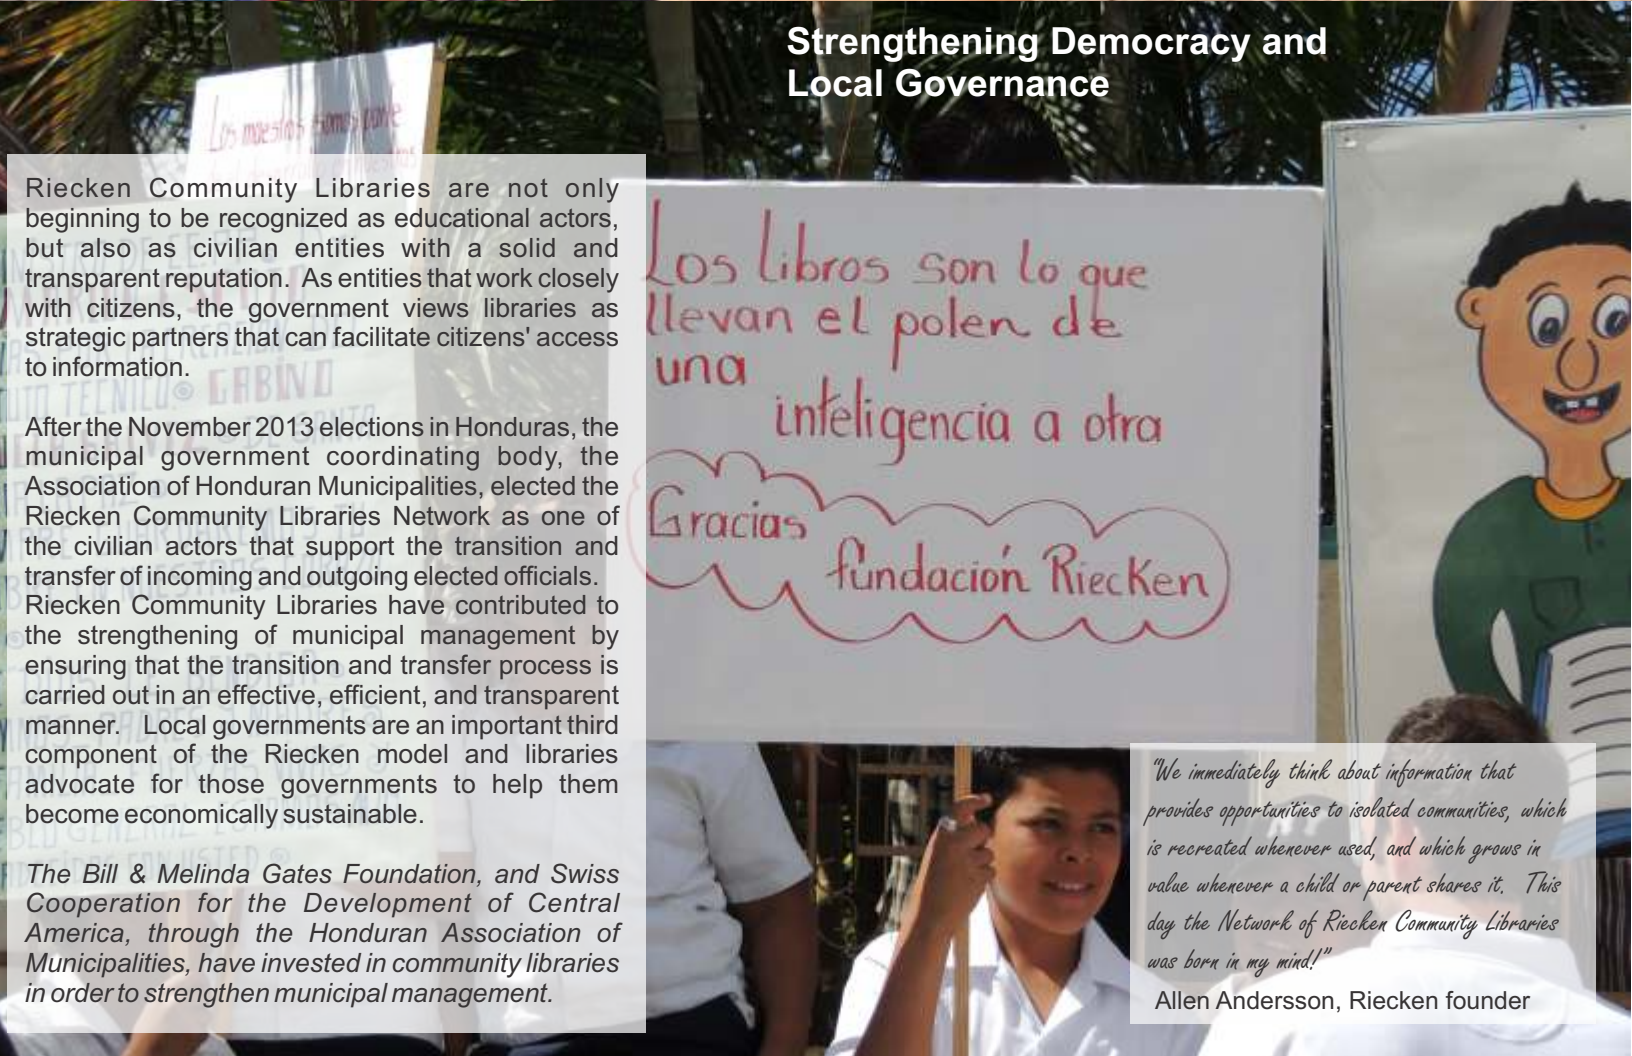 Strengthening Democracy and
Local Governance
Los maestros somos parte
Riecken Community Libraries are not only
beginning to be recognized as educational actors,
but also as civilian entities with a solid and
transparent reputation. As entities that work closely
with citizens, the government views libraries as
strategic partners that can facilitate citizens' access
to information.
After the November 2013 elections in Honduras, the
municipal government coordinating body, the
Association of Honduran Municipalities, elected the
Riecken Community Libraries Network as one of
the civilian actors that support the transition and
transfer of incoming and outgoing elected officials.
Riecken Community Libraries have contributed to
the strengthening of municipal management by
ensuring that the transition and transfer process is
carried out in an effective, efficient, and transparent
manner. Local governments are an important third
component of the Riecken model and libraries
advocate for those governments to help them
become economically sustainable.
The Bill & Melinda Gates Foundation, and Swiss
Cooperation for the Development of Central
America, through the Honduran Association of
Municipalities, have invested in community libraries
in order to strengthen municipal management.
Los libros son lo que
llevan el polen de
una
inteligencia a otra
Gracias
fundación Riecken
"We immediately think about information that
provides opportunities to isolated communities, which
is recreated whenever used, and which grows in
value whenever a child or parent shares it. This
day the Network of Riecken Community Libraries
was born in my mind!"
Allen Andersson, Riecken founder